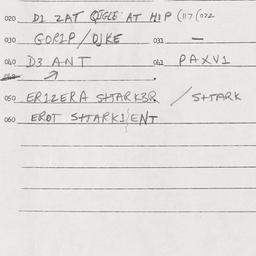 020 D1 2AT QIGLE AT HIP (117 (022
030 GOR1P / DJKE 031 —
040 D3 ANT 041 PAXV1
050 ER1ZERA SHTARK3R / SHTARK
060 EROT SHTARK1/ENT